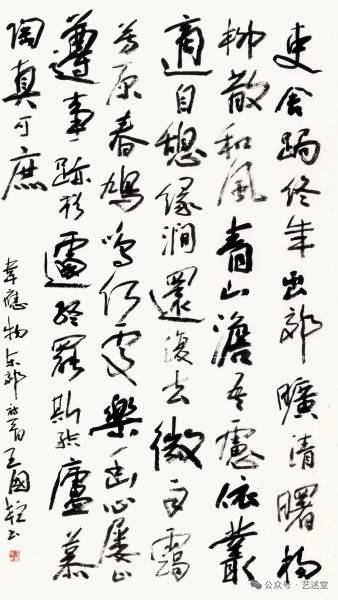 吏舍跼終年出郊曠清曙楊
柳散和風青山澹吾慮依叢
適自憩緣澗還復去微雨靄
芳原春鳩鳴何處樂幽心屢止
遵事跡猶遽終罷斯結廬慕
陶真可庶
韋應物東郊 王國
公众号·艺述堂